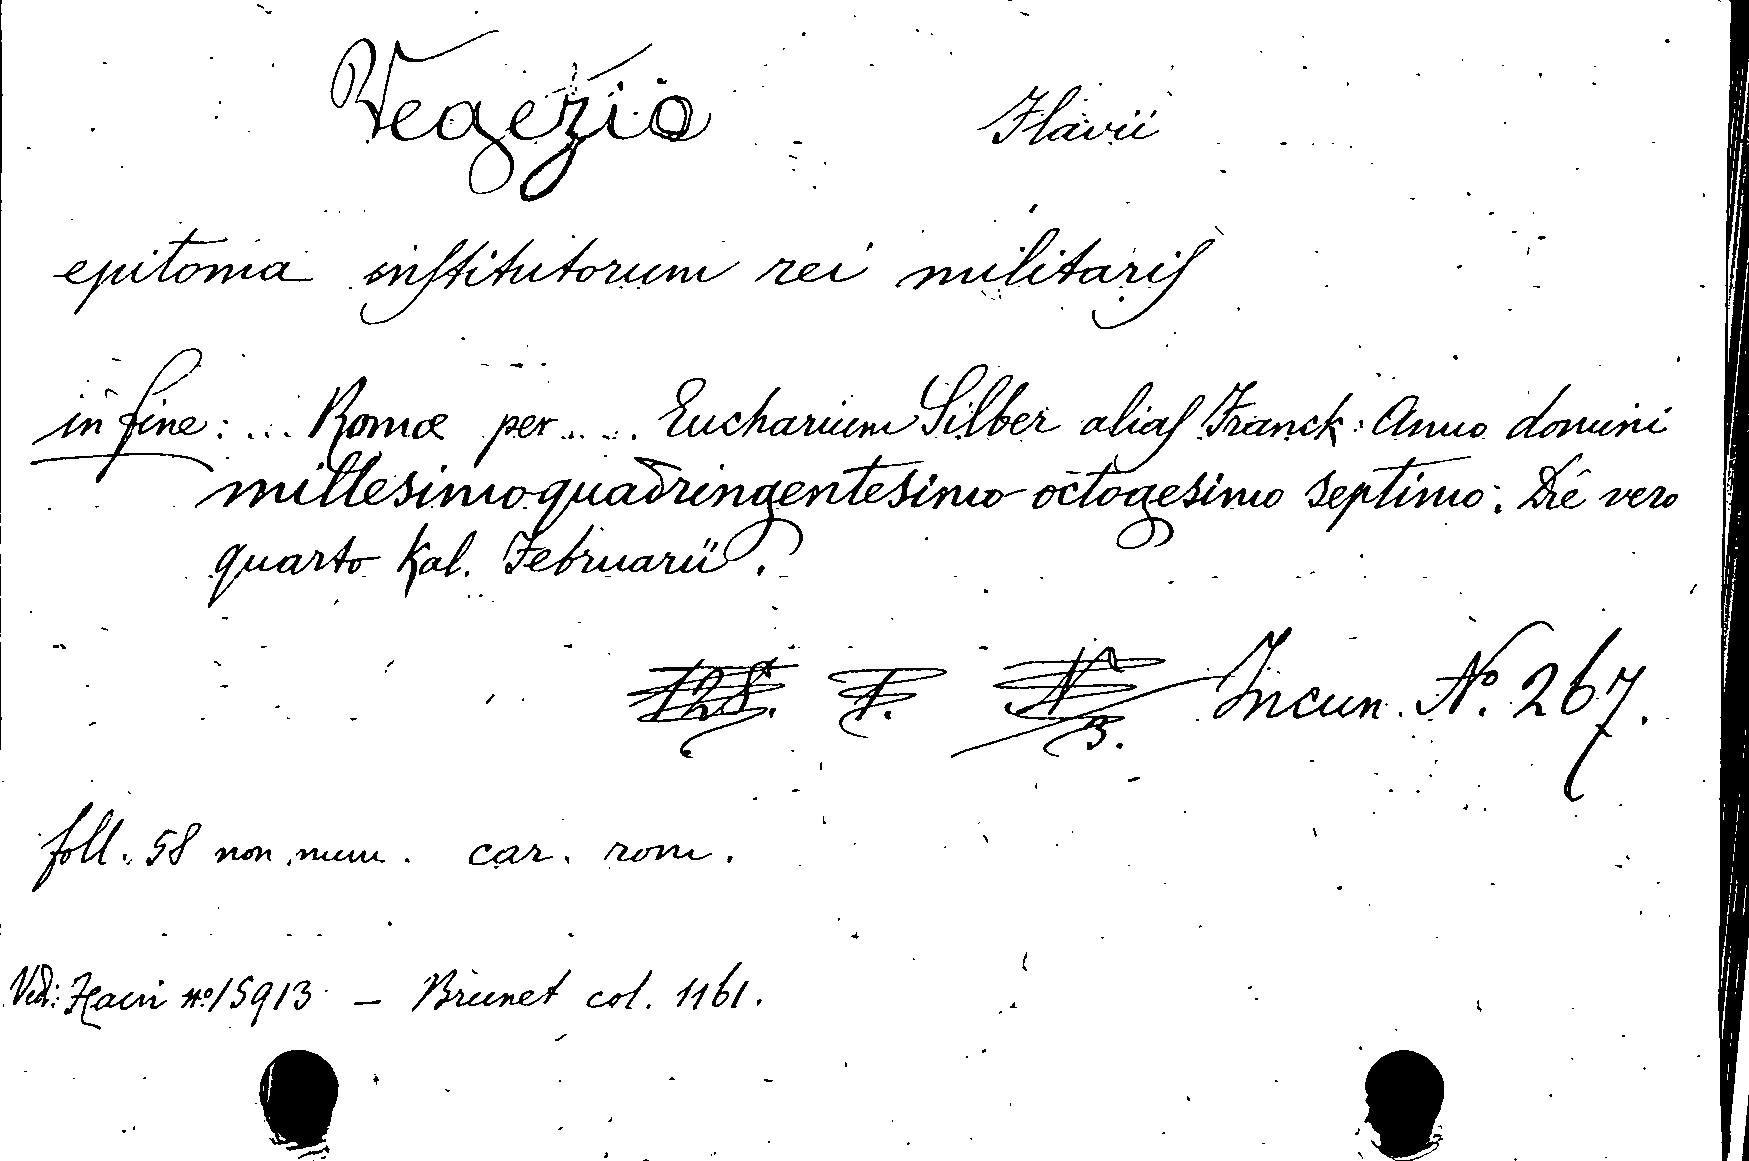 Vegezio Flavii
epitoma institutorum rei militaris
in fine: ... Romæ per .... Eucharium Silber alias Franck: Anno domini
millesimo quadringentesimo octogesimo septimo: Die vero
quarto Kal. Februarii.
128. I. N 3. Incun. No. 267.
foll. 58 non num. car. rom.
Vedi: Hain no 15913 — Brunet col. 1161.